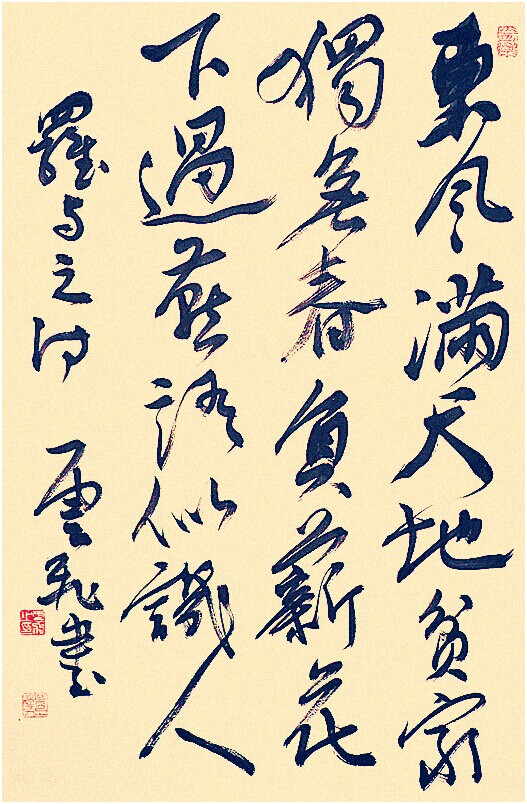 東风滿天地貧家
獨無春負薪花
下過燕語似識人
羅与之詩 雲飛書